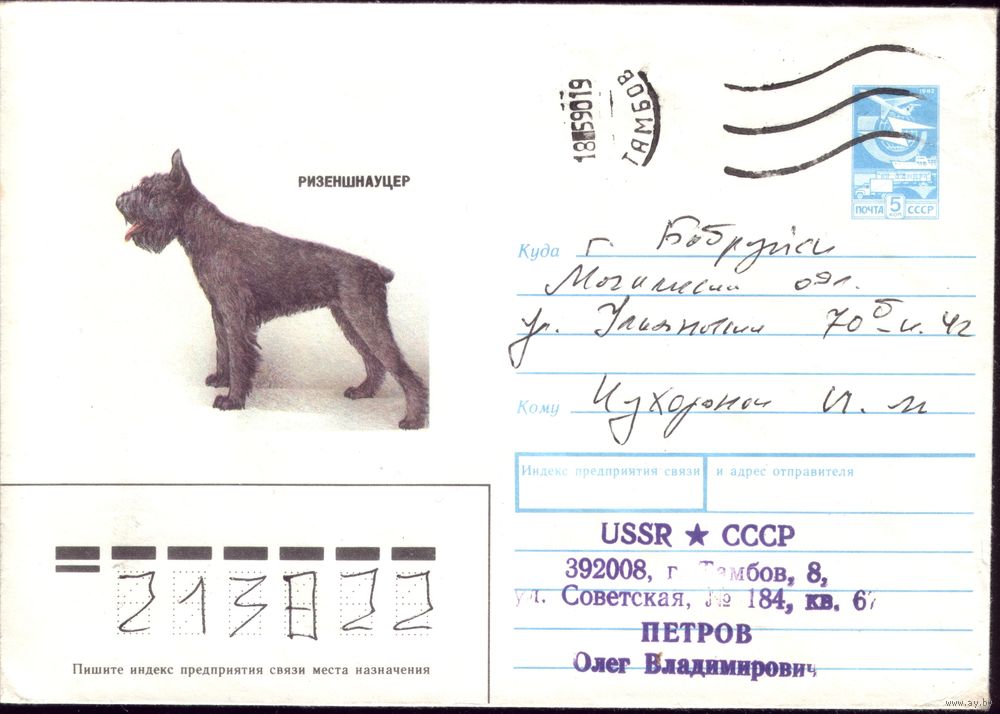 РИЗЕНШНАУЦЕР
18 59019
ТАМБОВ
1982
ПОЧТА 5 КОП СССР
Куда г. Бобруйск
Могилевской обл.
ул. Ульяновская 70
Кому И. М
Индекс предприятия связи и адрес отправителя
USSR ★ СССР
392008, г. Тамбов, 8,
ул. Советская, № 184, кв. 67
ПЕТРОВ
Олег Владимирович
213822
Пишите индекс предприятия связи места назначения
www.ay.by